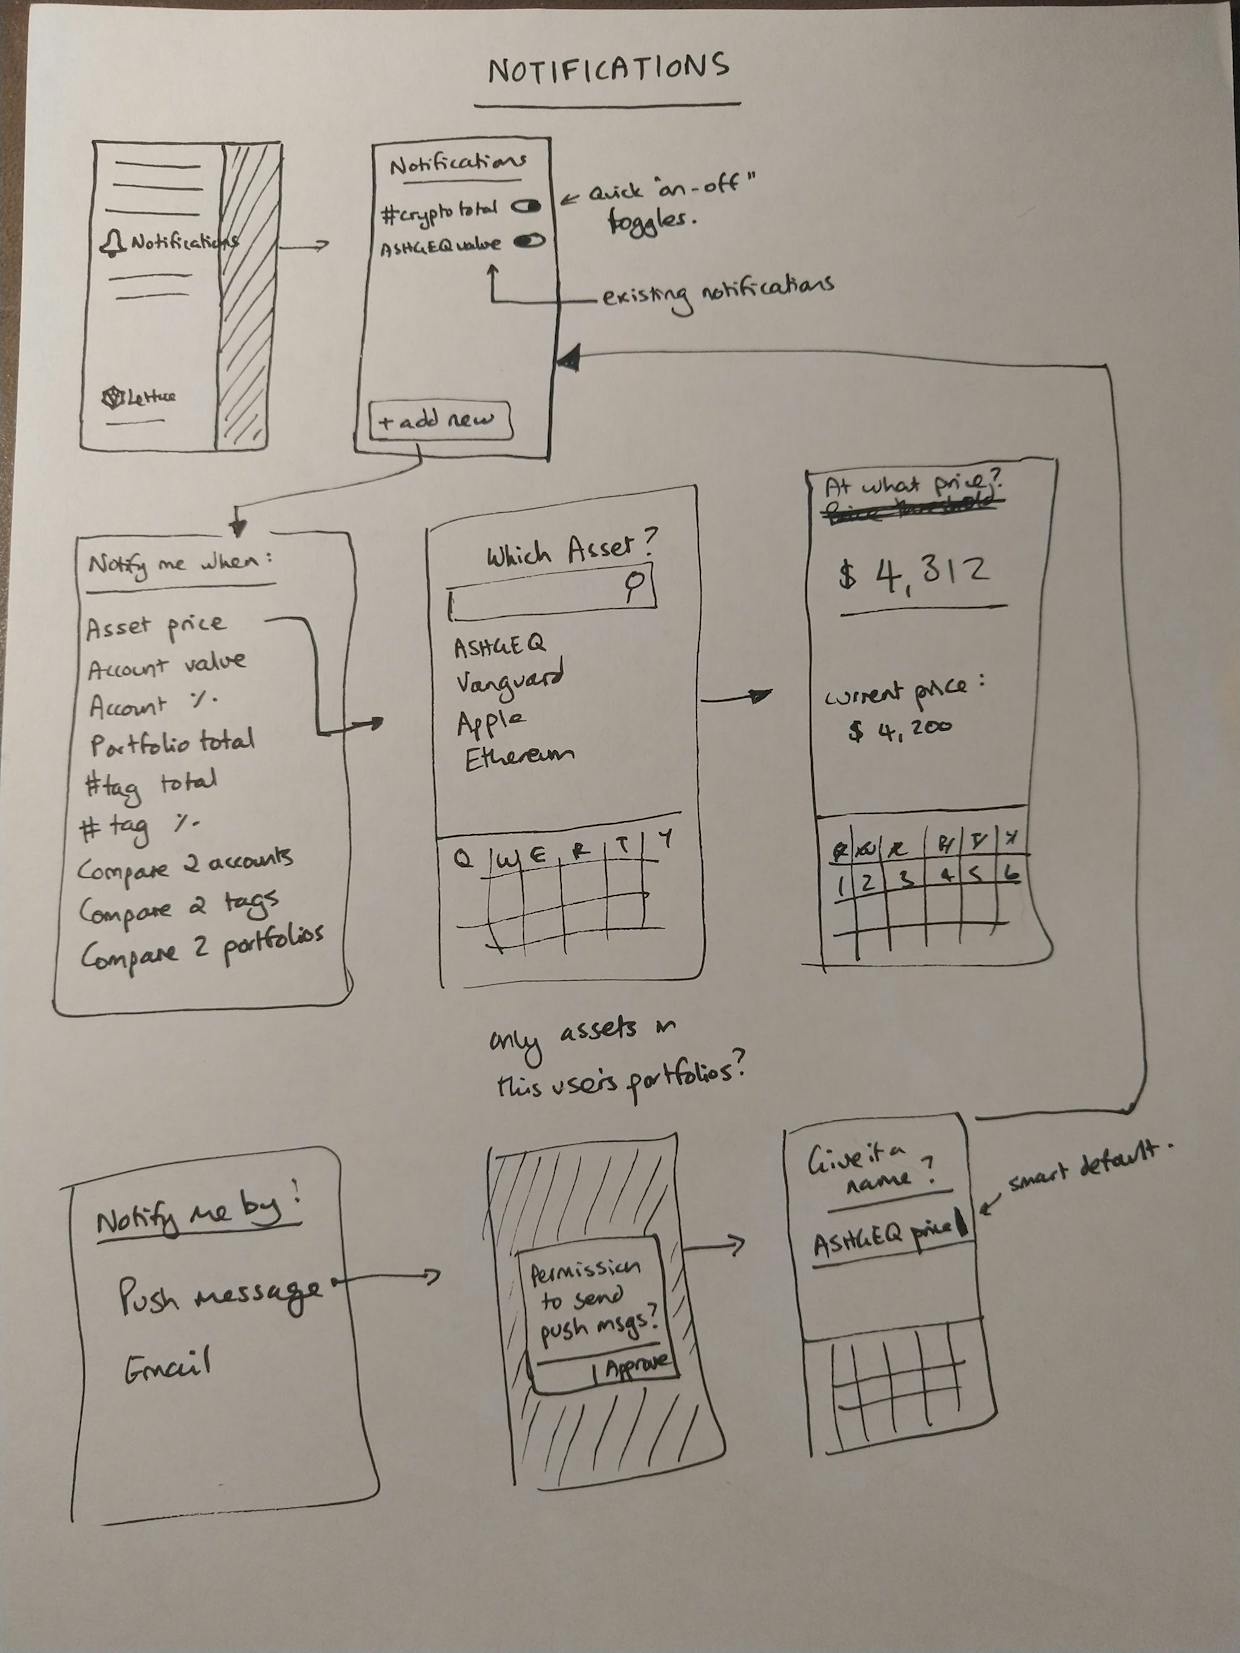 NOTIFICATIONS
Notifications
Lettuce
Notifications
#crypto total
ASHGEQ value
+ add new
Quick "on-off"
toggles.
existing notifications
Notify me when:
Asset price
Account value
Account %
Portfolio total
#tag total
# tag %
Compare 2 accounts
Compare 2 tags
Compare 2 portfolios
Which Asset?
ASHGEQ
Vanguard
Apple
Ethereum
Q W E R T Y
only assets in
this users portfolios?
At what price?
Price threshold
$ 4,312
current price:
$ 4,200
Q W E R T Y
1 2 3 4 5 6
Notify me by:
Push message
Email
Permission
to send
push msgs?
Approve
Give it a
name?
ASHGEQ price
smart default.